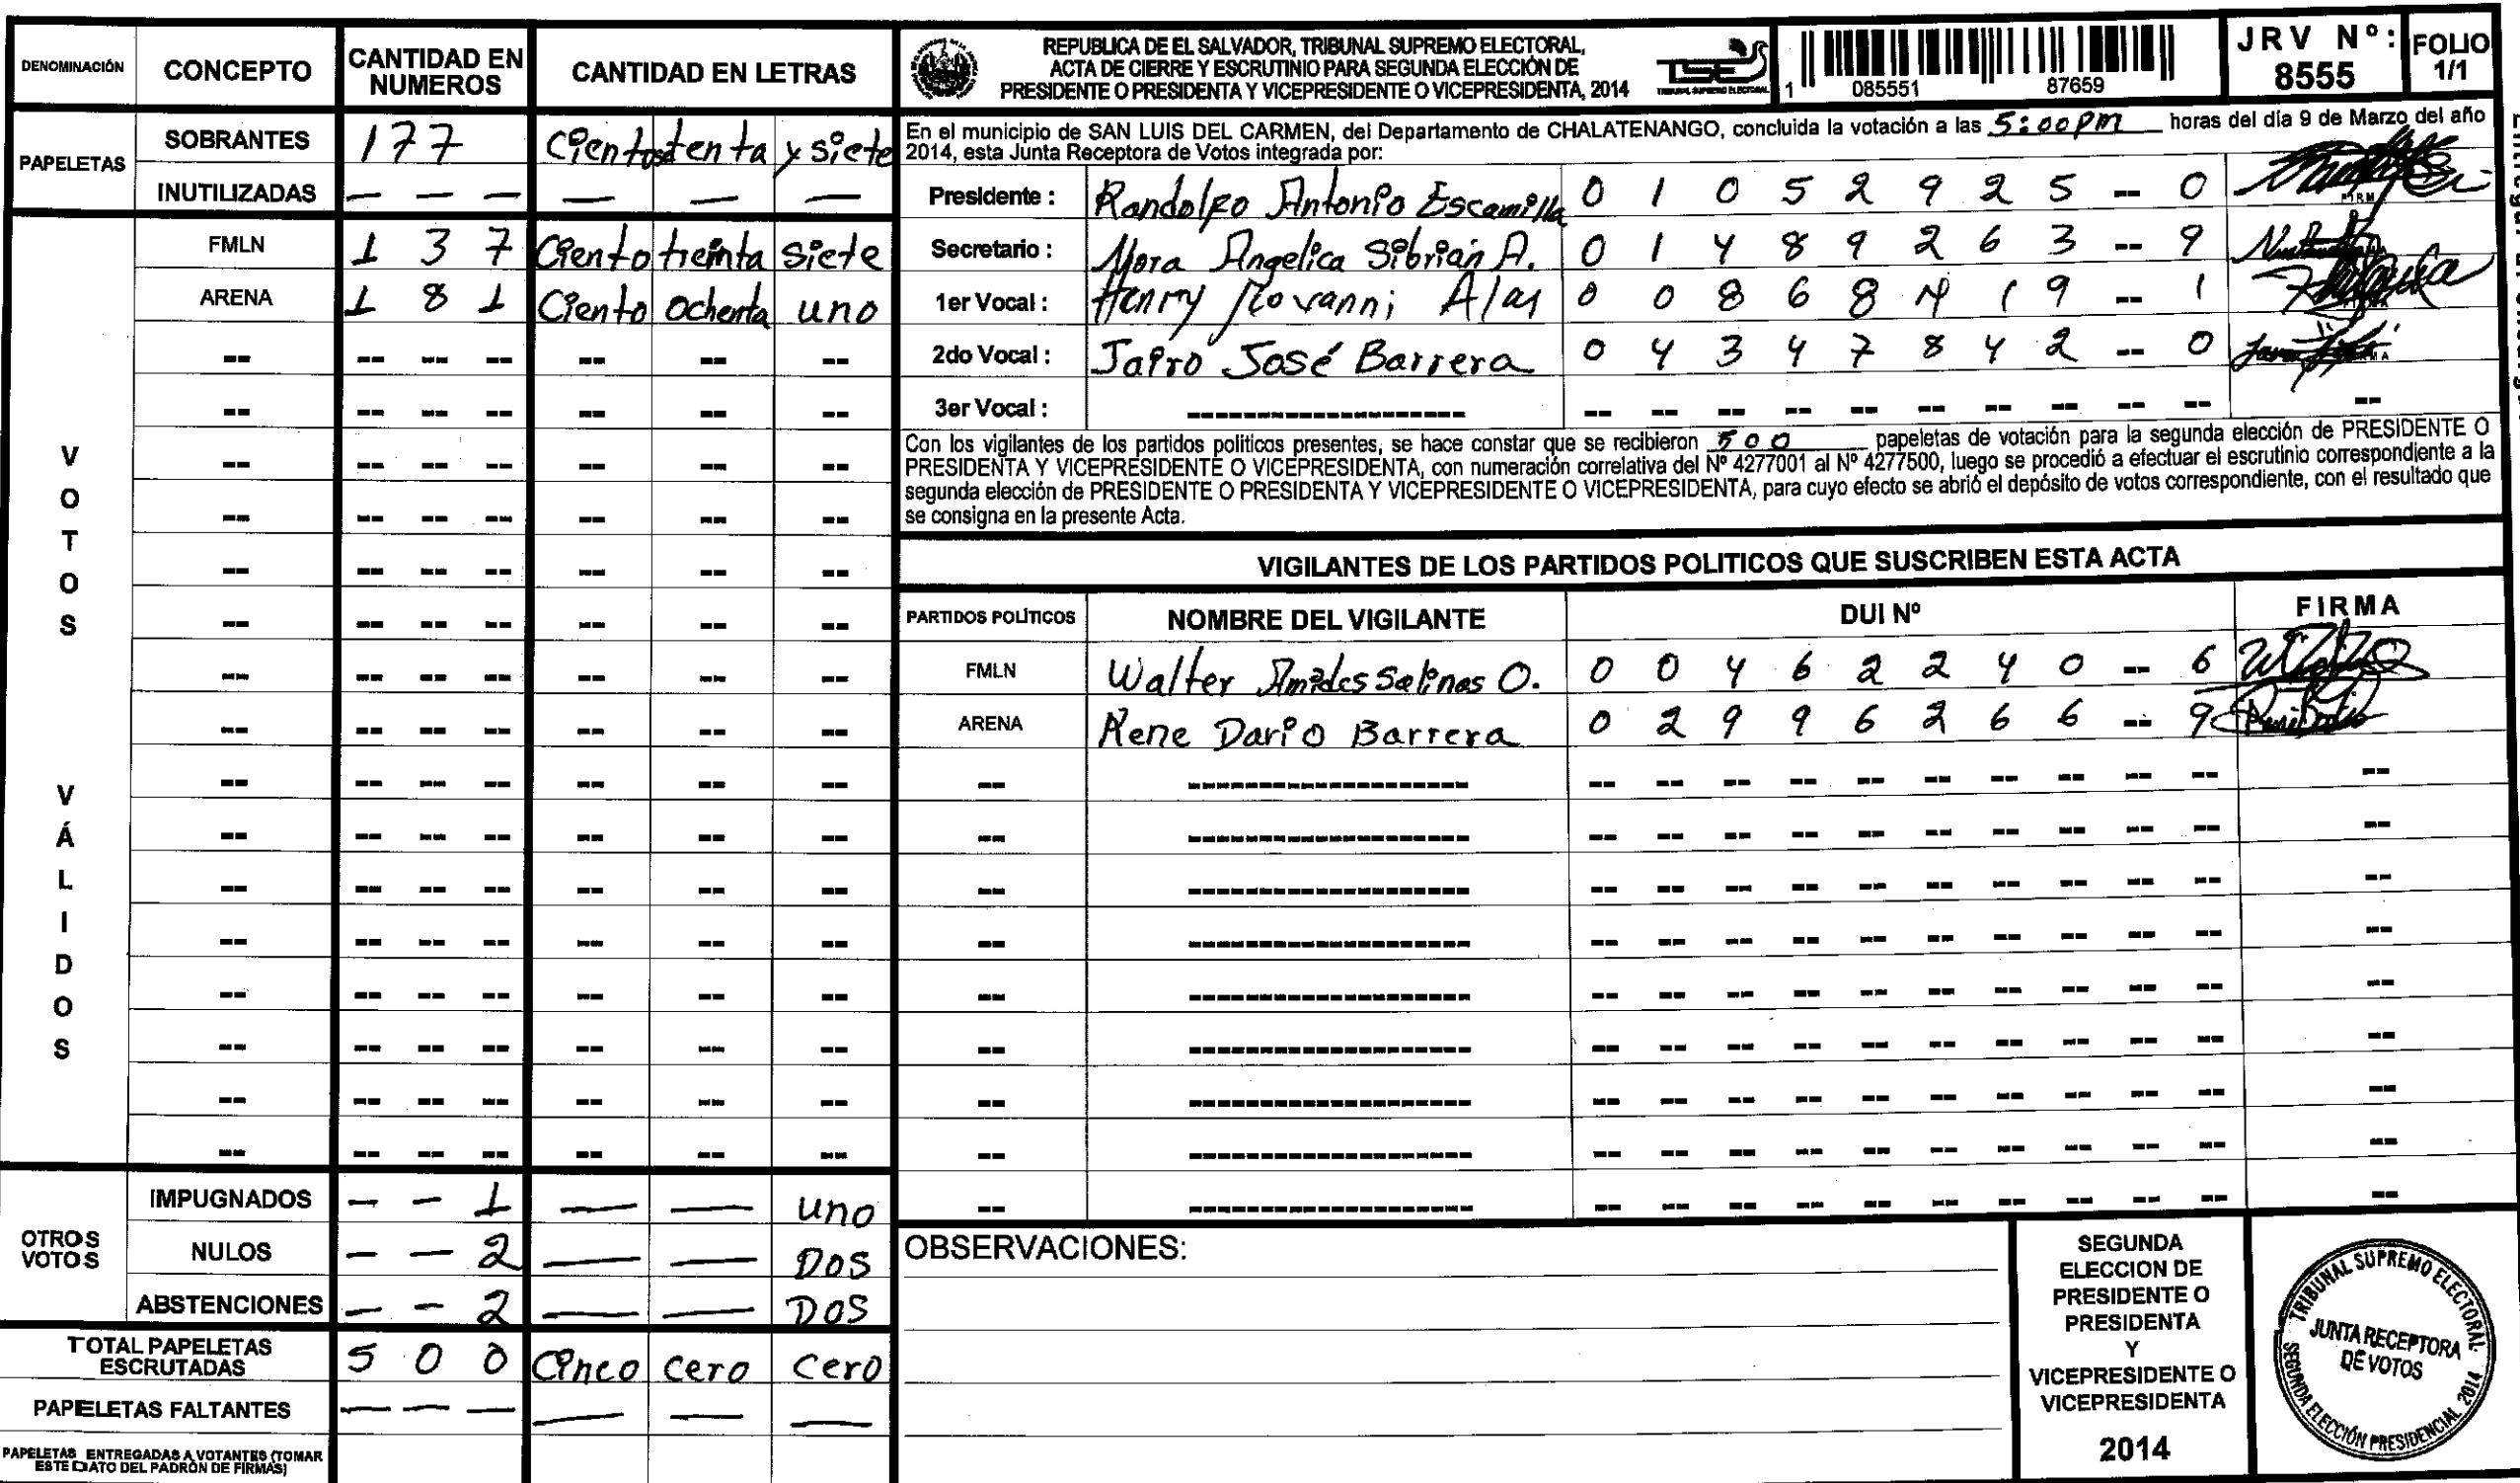 DENOMINACIÓN CONCEPTO CANTIDAD EN NUMEROS CANTIDAD EN LETRAS
PAPELETAS
SOBRANTES 177 Ciento setenta y siete
INUTILIZADAS — — — — — —
VOTOS VÁLIDOS
FMLN 1 3 7 Ciento treinta siete
ARENA 1 8 1 Ciento ochenta uno
OTROS VOTOS
IMPUGNADOS — — 1 — — uno
NULOS — — 2 — — DOS
ABSTENCIONES — — 2 — — DOS
TOTAL PAPELETAS ESCRUTADAS 5 0 0 Cinco cero cero
PAPELETAS FALTANTES — — — — — —
PAPELETAS ENTREGADAS A VOTANTES (TOMAR
ESTE DATO DEL PADRÓN DE FIRMAS)
REPUBLICA DE EL SALVADOR, TRIBUNAL SUPREMO ELECTORAL,
ACTA DE CIERRE Y ESCRUTINIO PARA SEGUNDA ELECCIÓN DE
PRESIDENTE O PRESIDENTA Y VICEPRESIDENTE O VICEPRESIDENTA, 2014
TSE
TRIBUNAL SUPREMO ELECTORAL
1 085551 87659
JRV Nº: 8555
FOLIO 1/1
En el municipio de SAN LUIS DEL CARMEN, del Departamento de CHALATENANGO, concluida la votación a las 5:00 PM horas del día 9 de Marzo del año
2014, esta Junta Receptora de Votos integrada por:
Presidente : Randolfo Antonio Escamilla 0 1 0 5 2 9 2 5 -- 0
Secretario : Nora Angelica Sibrián A. 0 1 4 8 9 2 6 3 -- 9
1er Vocal : Henry Alas 0 0 8 6 8 4 1 9 -- 1
2do Vocal : Jairo José Barrera 0 4 3 4 7 8 4 2 -- 0
3er Vocal :
Con los vigilantes de los partidos politicos presentes, se hace constar que se recibieron 500 papeletas de votación para la segunda elección de PRESIDENTE O
PRESIDENTA Y VICEPRESIDENTE O VICEPRESIDENTA, con numeración correlativa del Nº 4277001 al Nº 4277500, luego se procedió a efectuar el escrutinio correspondiente a la
segunda elección de PRESIDENTE O PRESIDENTA Y VICEPRESIDENTE O VICEPRESIDENTA, para cuyo efecto se abrió el depósito de votos correspondiente, con el resultado que
se consigna en la presente Acta.
VIGILANTES DE LOS PARTIDOS POLITICOS QUE SUSCRIBEN ESTA ACTA
PARTIDOS POLÍTICOS NOMBRE DEL VIGILANTE DUI Nº FIRMA
FMLN Walter Salinas O. 0 0 4 6 2 2 4 0 -- 6
ARENA Rene Dario Barrera 0 2 9 9 6 2 6 6 -- 9
OBSERVACIONES:
SEGUNDA
ELECCION DE
PRESIDENTE O
PRESIDENTA
Y
VICEPRESIDENTE O
VICEPRESIDENTA
2014
TRIBUNAL SUPREMO ELECTORAL
JUNTA RECEPTORA
DE VOTOS
SEGUNDA ELECCIÓN PRESIDENCIAL 2014